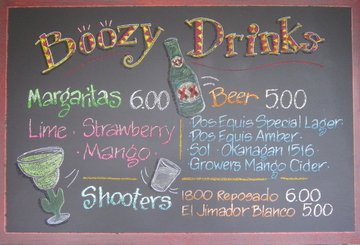 Boozy Drinks
Margaritas 6.00
Lime · Strawberry
· Mango ·
XX
Beer 5.00
Dos Equis Special Lager
Dos Equis Amber ·
Sol · Okanagan 1516 ·
Growers Mango Cider ·
Shooters
1800 Reposado 6.00
El Jimador Blanco 5.00